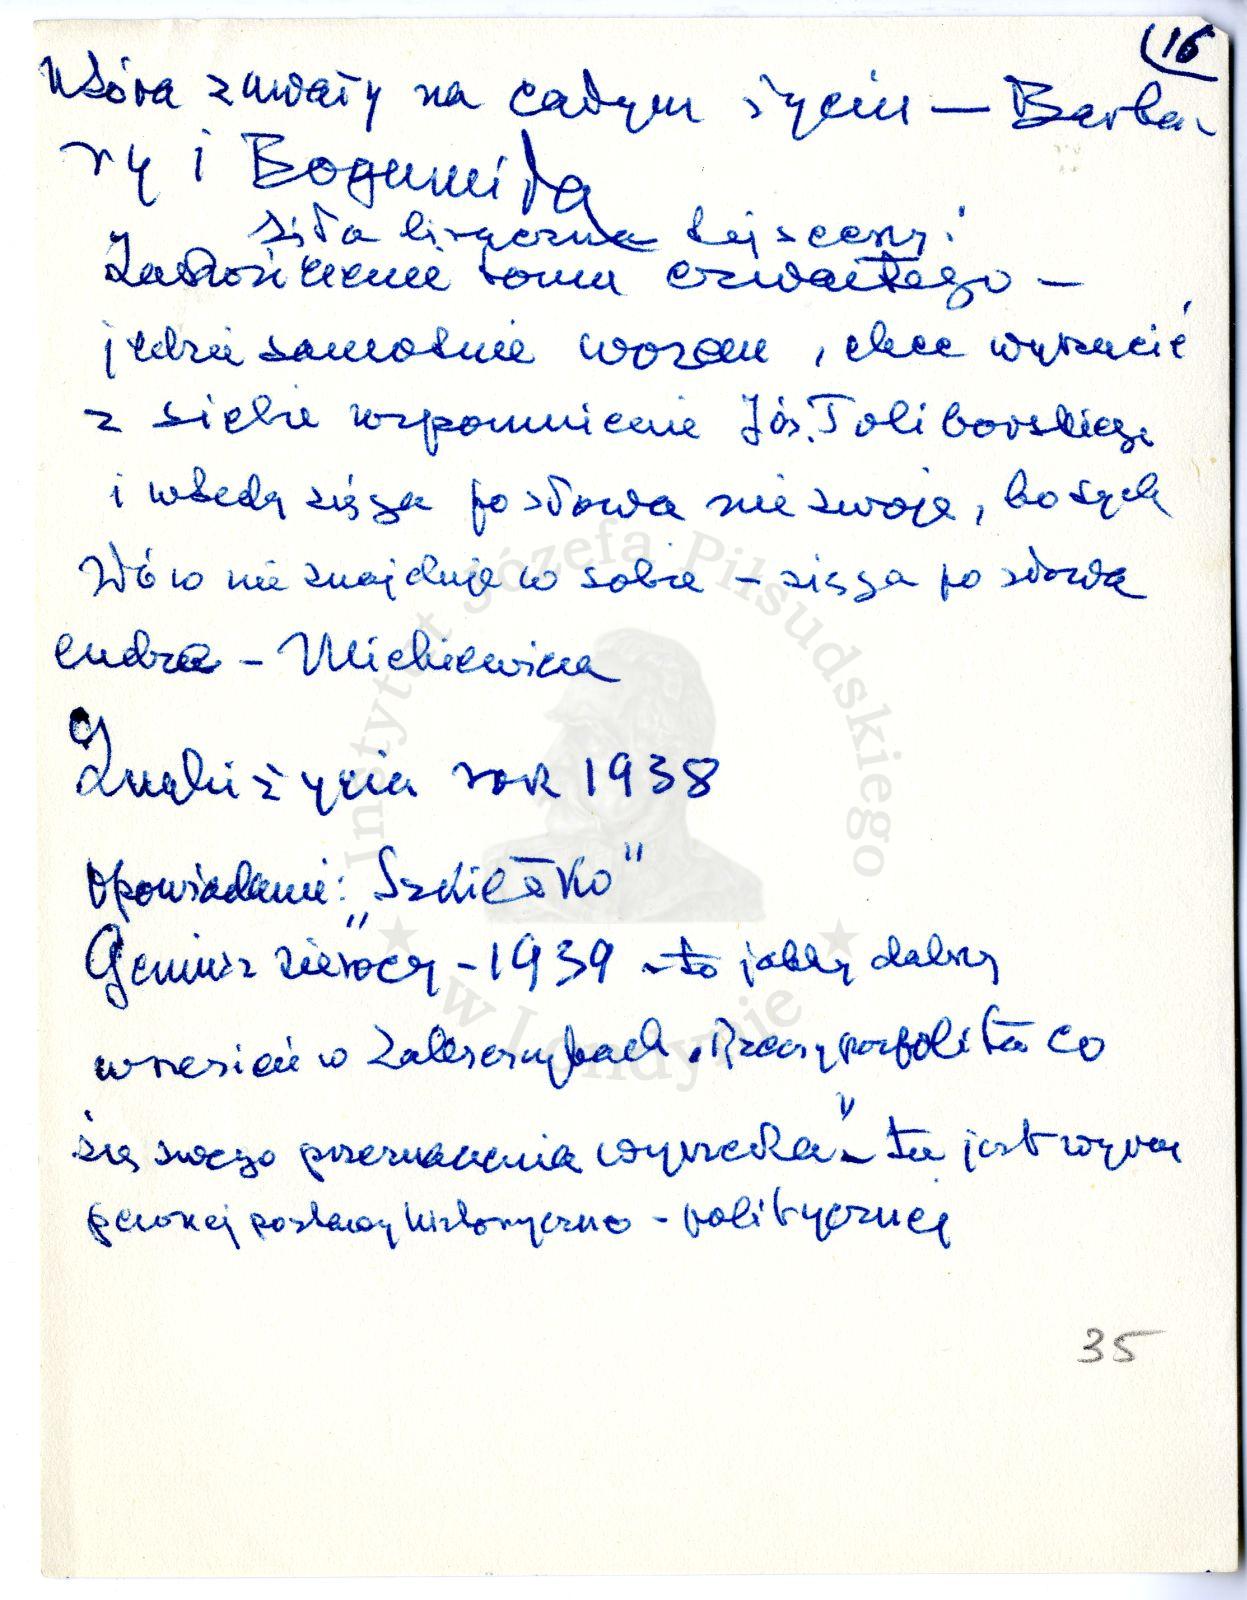 16
która zaważy na całym życiu — Barba-
ry i Bogumiła
siła liryczna tej sceny!
Zakończenie tomu czwartego —
jedzie samotnie wozem, chce wyrzucić
z siebie wspomnienie Józ. Toliborskiego
i wtedy sięga po słowa nie swoje, bo tych
słów nie znajduje w sobie – sięga po słowa
cudze – Mickiewicza
Znaki życia rok 1938
opowiadanie: "Szkiełko"
Geniusz sierocy – 1939 – to jakby dalszy
wrzesień w Zaleszczykach. "Rzeczpospolita co
się swego przeznaczenia wyrzekła" – tu jest wyraz
pewnej postawy historyczno – politycznej
35
Instytut Józefa Piłsudskiego
w Londynie